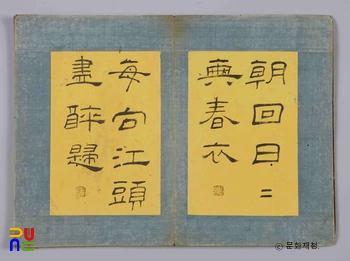 朝回日二
典春衣
每向江頭
盡醉歸
ⓒ 문화재청